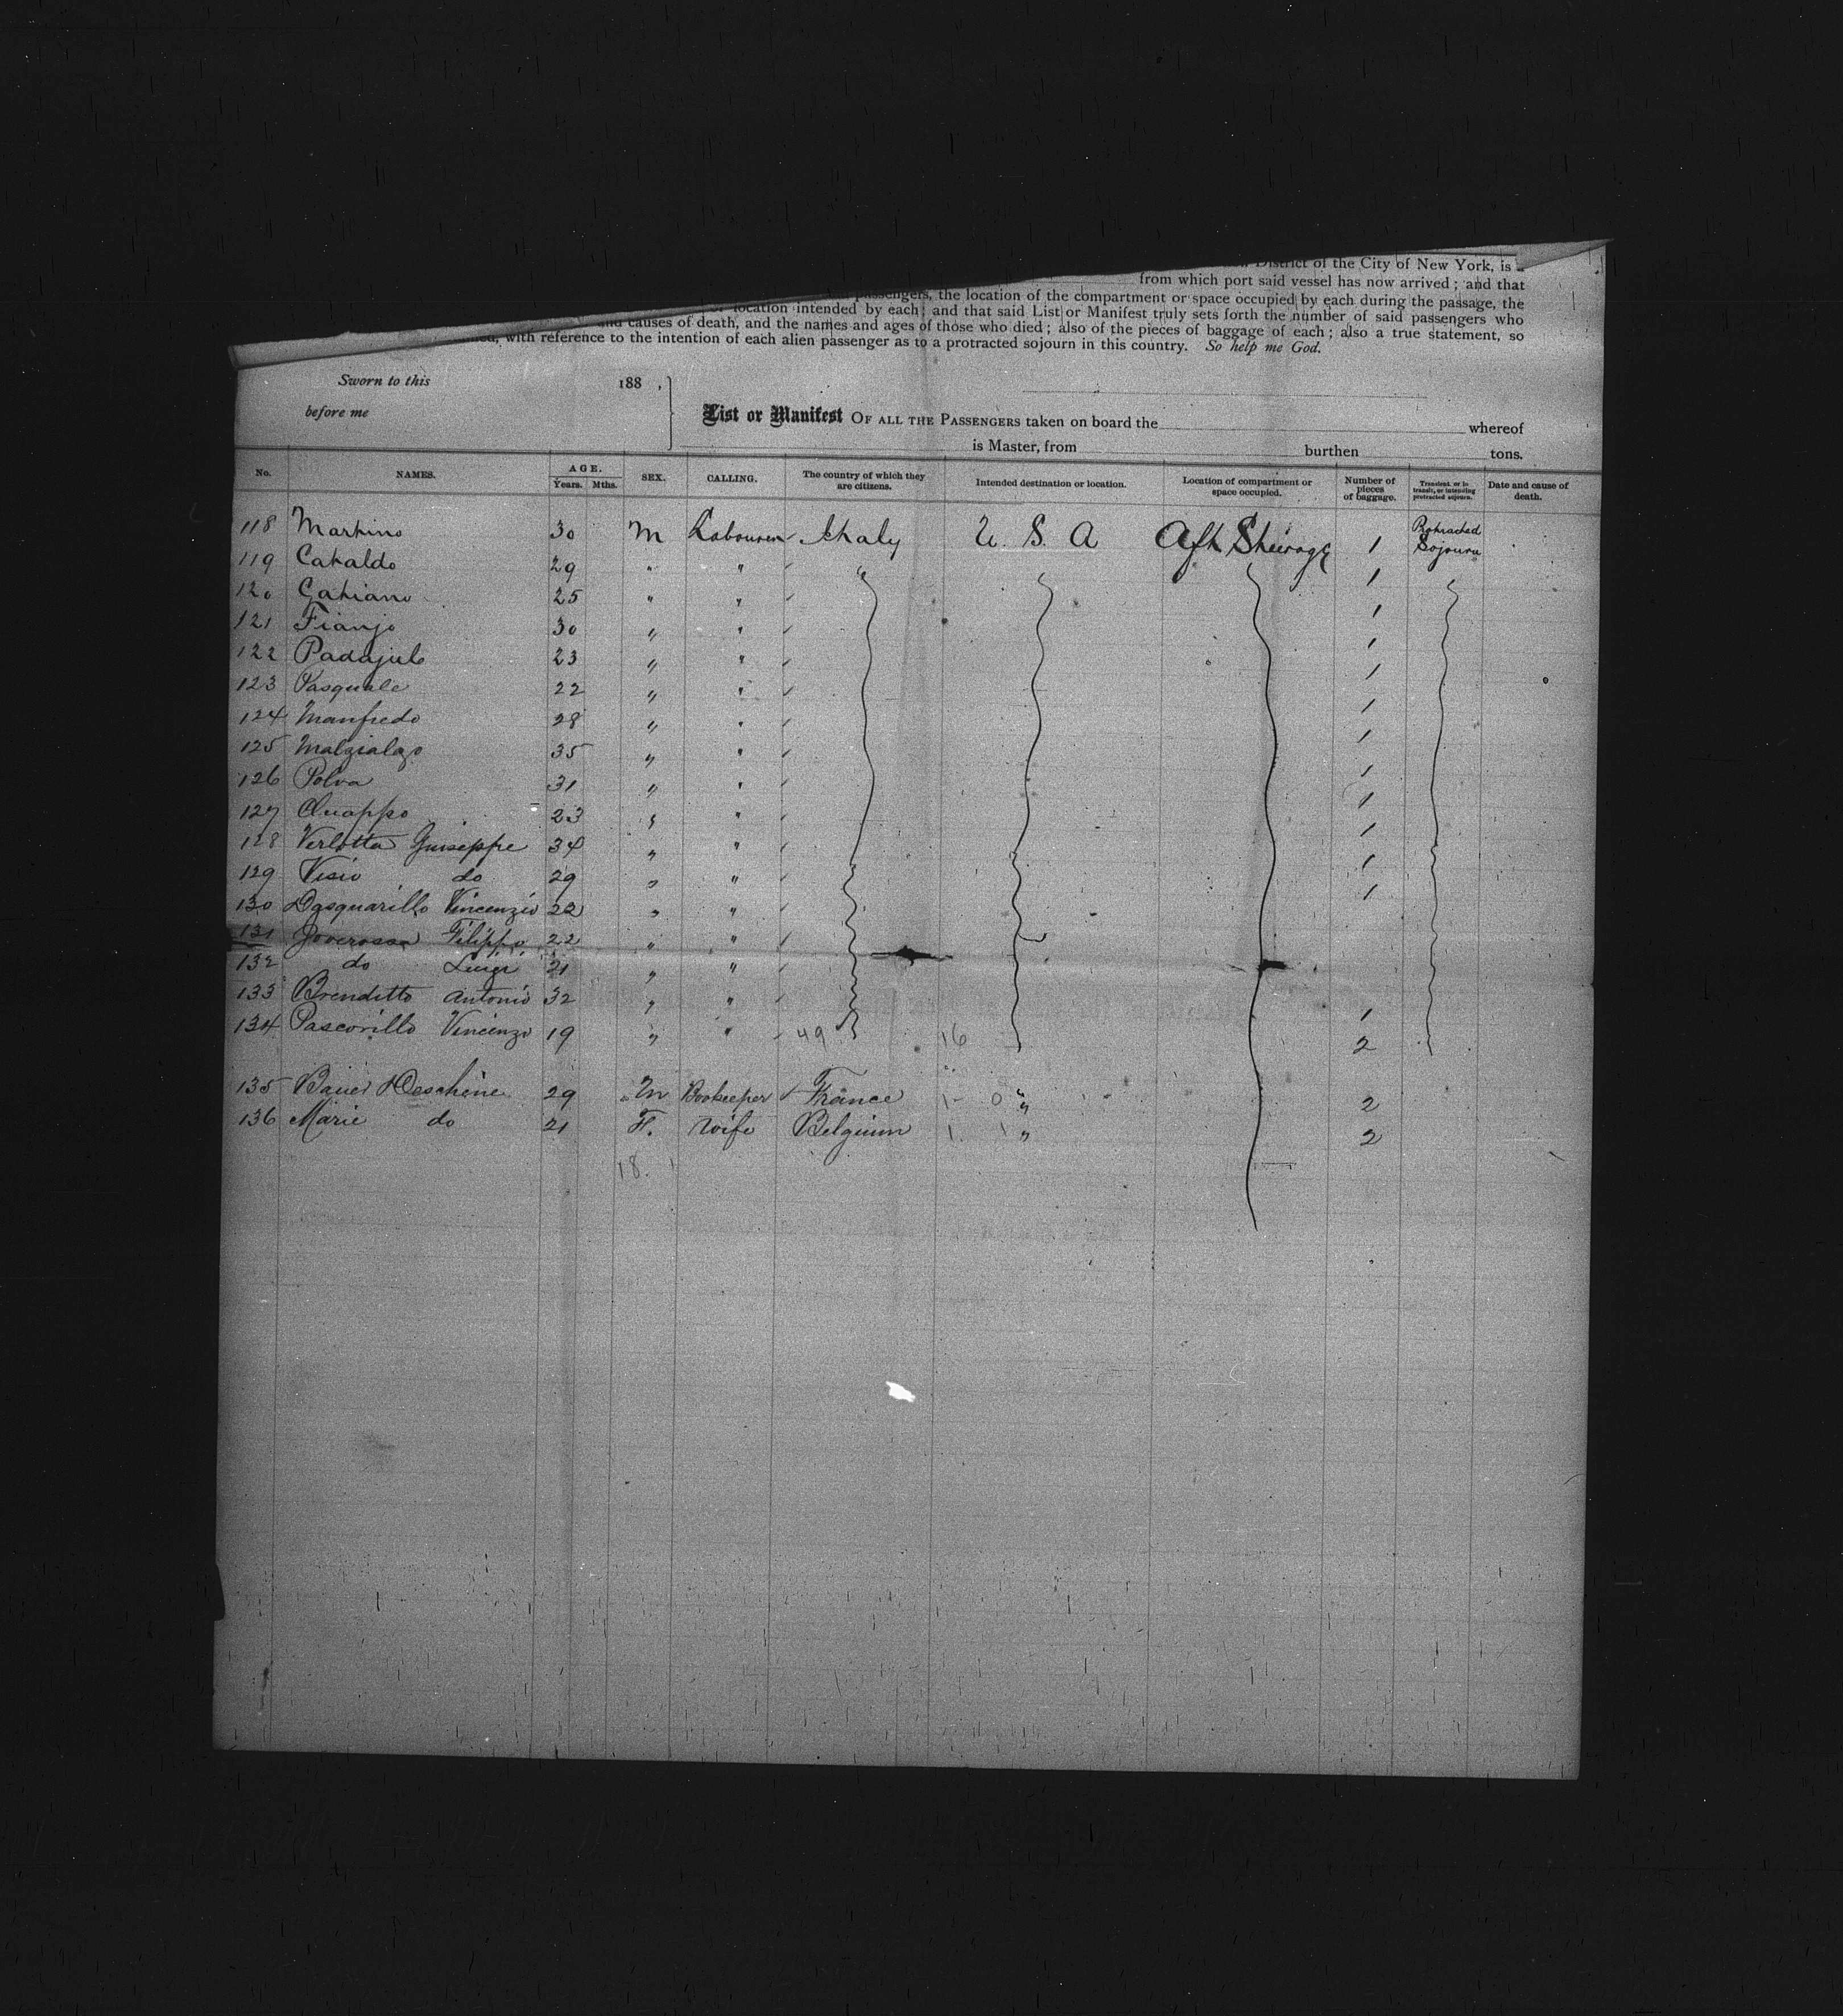 District of the City of New York, is a
from which port said vessel has now arrived; and that
passengers, the location of the compartment or space occupied by each during the passage, the
location intended by each; and that said List or Manifest truly sets forth the number of said passengers who
and causes of death, and the names and ages of those who died; also of the pieces of baggage of each; also a true statement, so
with reference to the intention of each alien passenger as to a protracted sojourn in this country. So help me God.
Sworn to this 188 ,
before me
List or Manifest OF ALL THE PASSENGERS taken on board the whereof
is Master, from burthen tons.
No. NAMES. AGE. Years. Mths. SEX. CALLING. The country of which they are citizens. Intended destination or location. Location of compartment or space occupied. Number of pieces of baggage. Transient, or in transit, or intending protracted sojourn. Date and cause of death.
118 Martino 30 M Labourer Italy U. S. A Aft Steerage 1 Protracted Sojourn
119 Cataldo 29 " " " 1
120 Gatiano 25 " " 1
121 Fianjo 30 " " 1
122 Padajulo 23 " " 1
123 Pasquale 22 " " 1
124 Manfredo 28 " " 1
125 35 " " 1
126 Polva 31 " " 1
127 23 " " 1
128 Verlotta Guiseppe 34 " " 1
129 Visio do 29 " " 1
130 Dasquarillo Vincenzio 22 " "
131 Filippo 22 " "
132 do Luigi 21 " "
133 Brenditto Antonio 32 " " 1
134 Pascorillo Vincenzo 19 " " 49 16 2
135 Bauer Deschene 29 M Bookeeper France 1 0 " 2
136 Marie do 21 F. Wife Belgium 1 1 " 2
18. 1